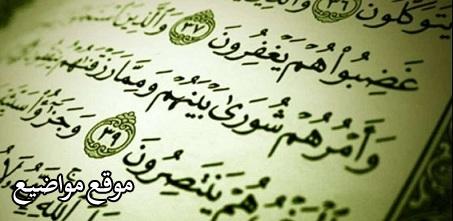 يَتَوَكَّلُونَ ٣٦ وَالَّذِينَ
غَضِبُوا هُمْ يَغْفِرُونَ ٣٧ وَالَّذِينَ
وَأَمْرُهُمْ شُورَىٰ بَيْنَهُمْ وَمِمَّا رَزَقْنَٰهُمْ
هُمْ يَنتَصِرُونَ ٣٩ وَجَزَٰٓؤُا۟
موقع مواضيع